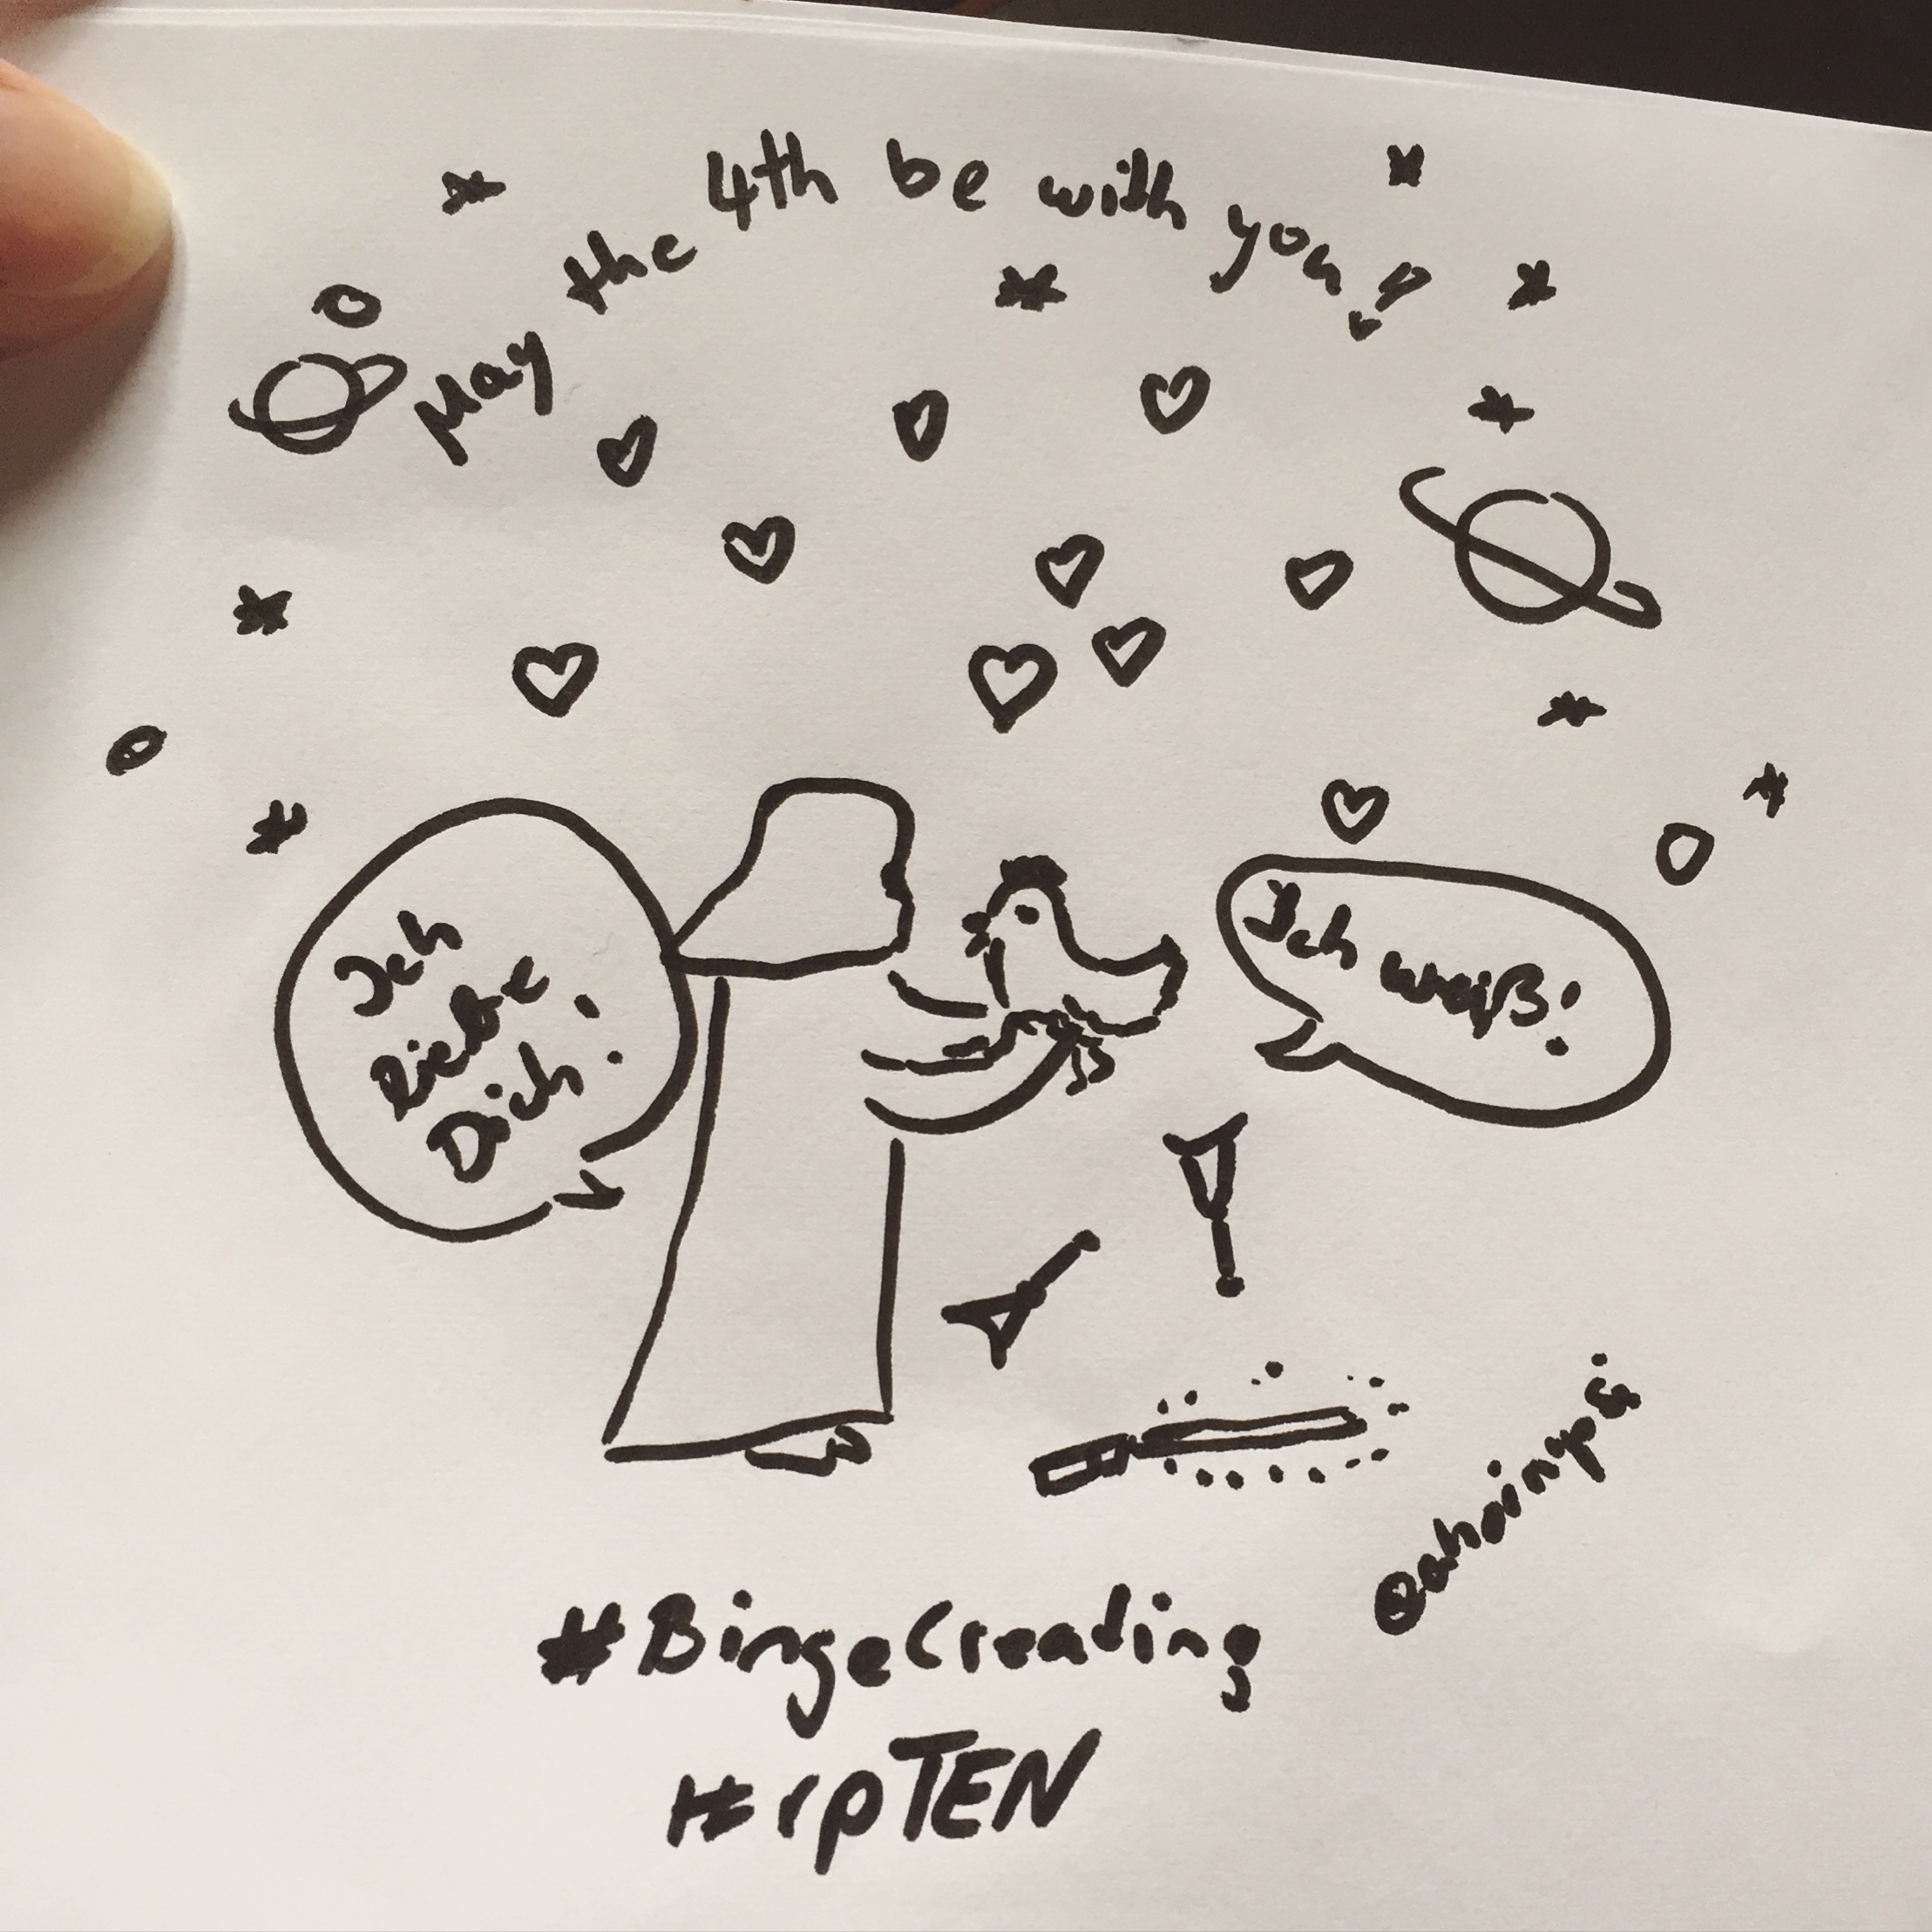 May the 4th be with you!
Ich
liebe
Dich!
Ich weiß!
@ahoinypsi
#BingeCreading
#rpTEN